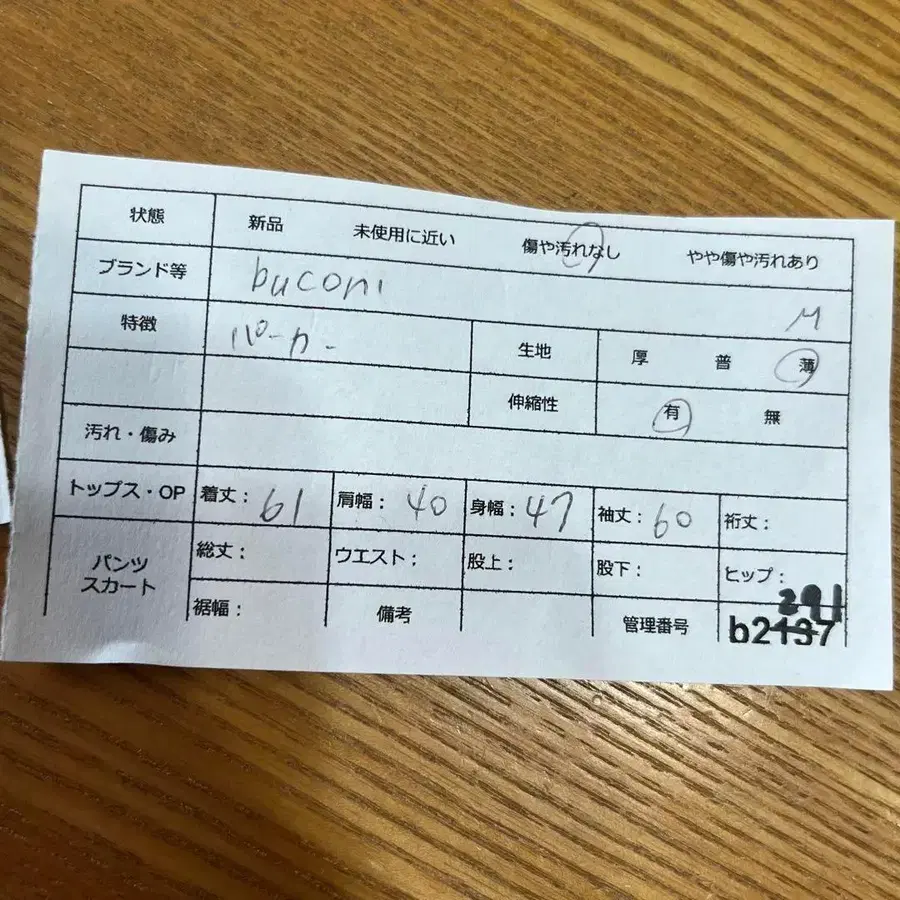 状態 新品 未使用に近い 傷や汚れなし やや傷や汚れあり
ブランド等 buconi M
特徴 パーカー 生地 厚 普 薄
伸縮性 有 無
汚れ・傷み
トップス・OP 着丈: 61 肩幅: 40 身幅: 47 袖丈: 60 裄丈:
パンツ スカート 総丈: ウエスト: 股上: 股下: ヒップ:
裾幅: 備考 管理番号 b2137 291